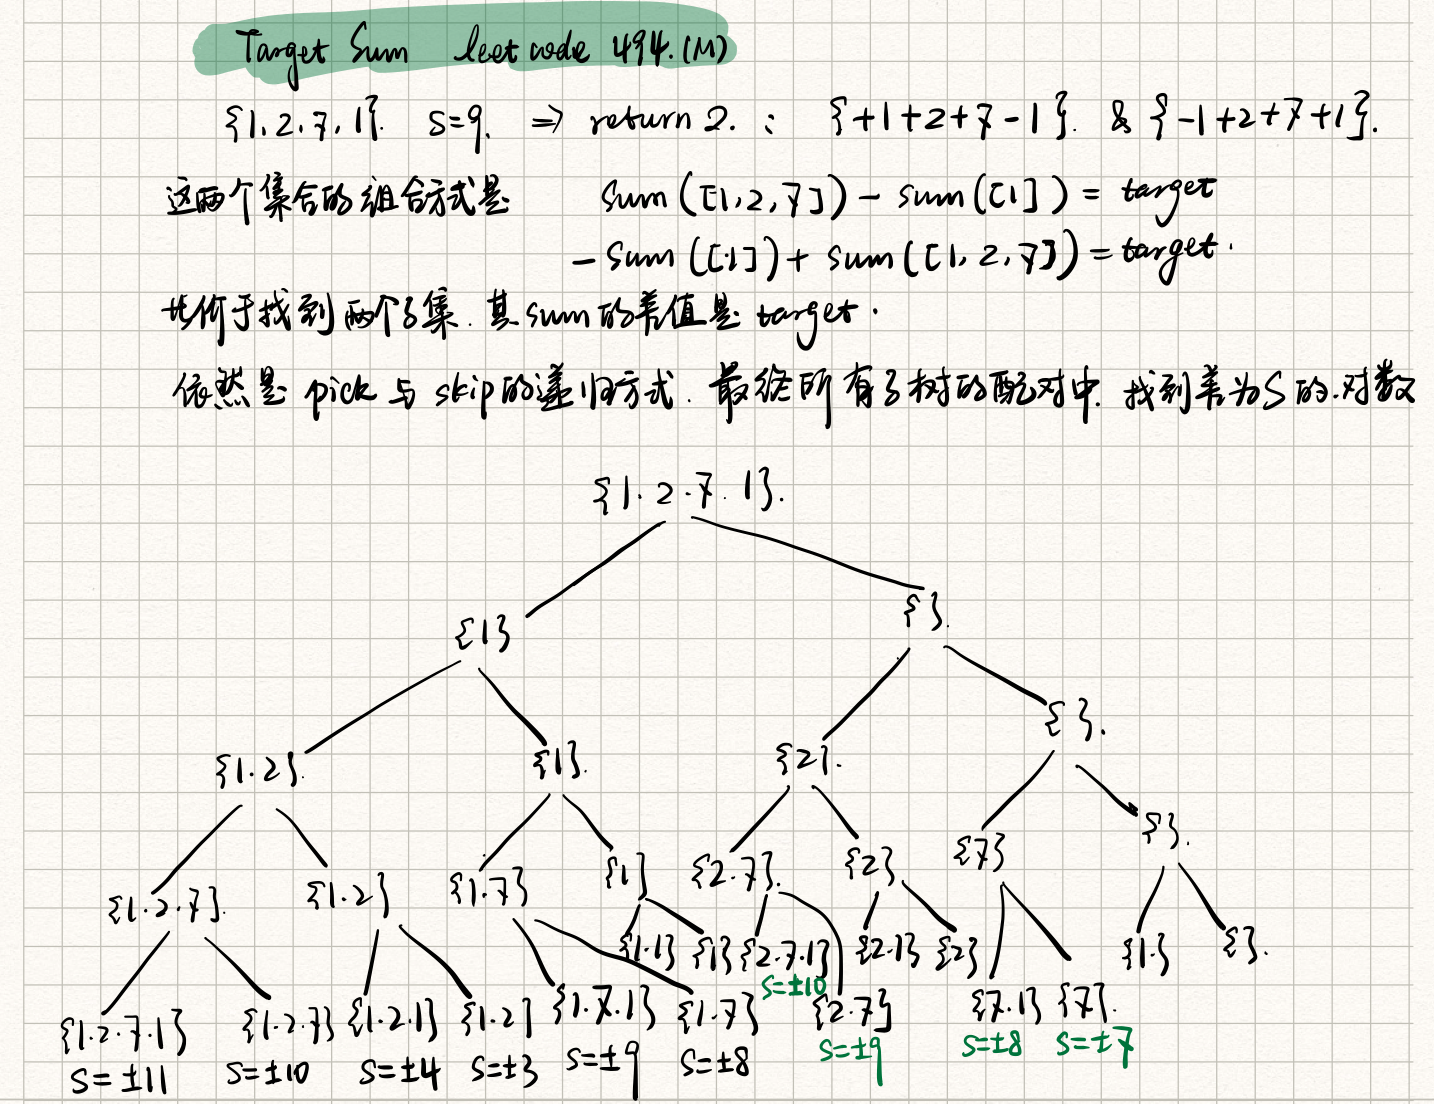 Target Sum leetcode 494.(M)
{1,2,7,1}. S=9. ⇒ return 2. : {+1+2+7-1}. & {-1+2+7+1}.
这两个集合的组合方式是 Sum([1,2,7]) - sum([1]) = target
- Sum([1]) + sum([1,2,7]) = target.
找到两个子集. 其sum的差值是 target.
依然是 pick 与 skip的递归方式. 最终所有子树的配对中. 找到差为S的.对数
{1.2.7.1}.
{1} { }.
{1.2}. {1}. {2}. { }.
{1.2.7}. {1.2} {1.7} {1} {2.7}. {2} {7} { }.
{1.1} {1} {2.7.1} {2.1} {2} {1.} { }.
S=±10
{1.2.7.1} {1.2.7} {1.2.1} {1.2} {1.7.1} {1.7} {2.7} {7.1} {7}.
S=±11 S=±10 S=±4 S=±3 S=±9 S=±8 S=±9 S=±8 S=±7